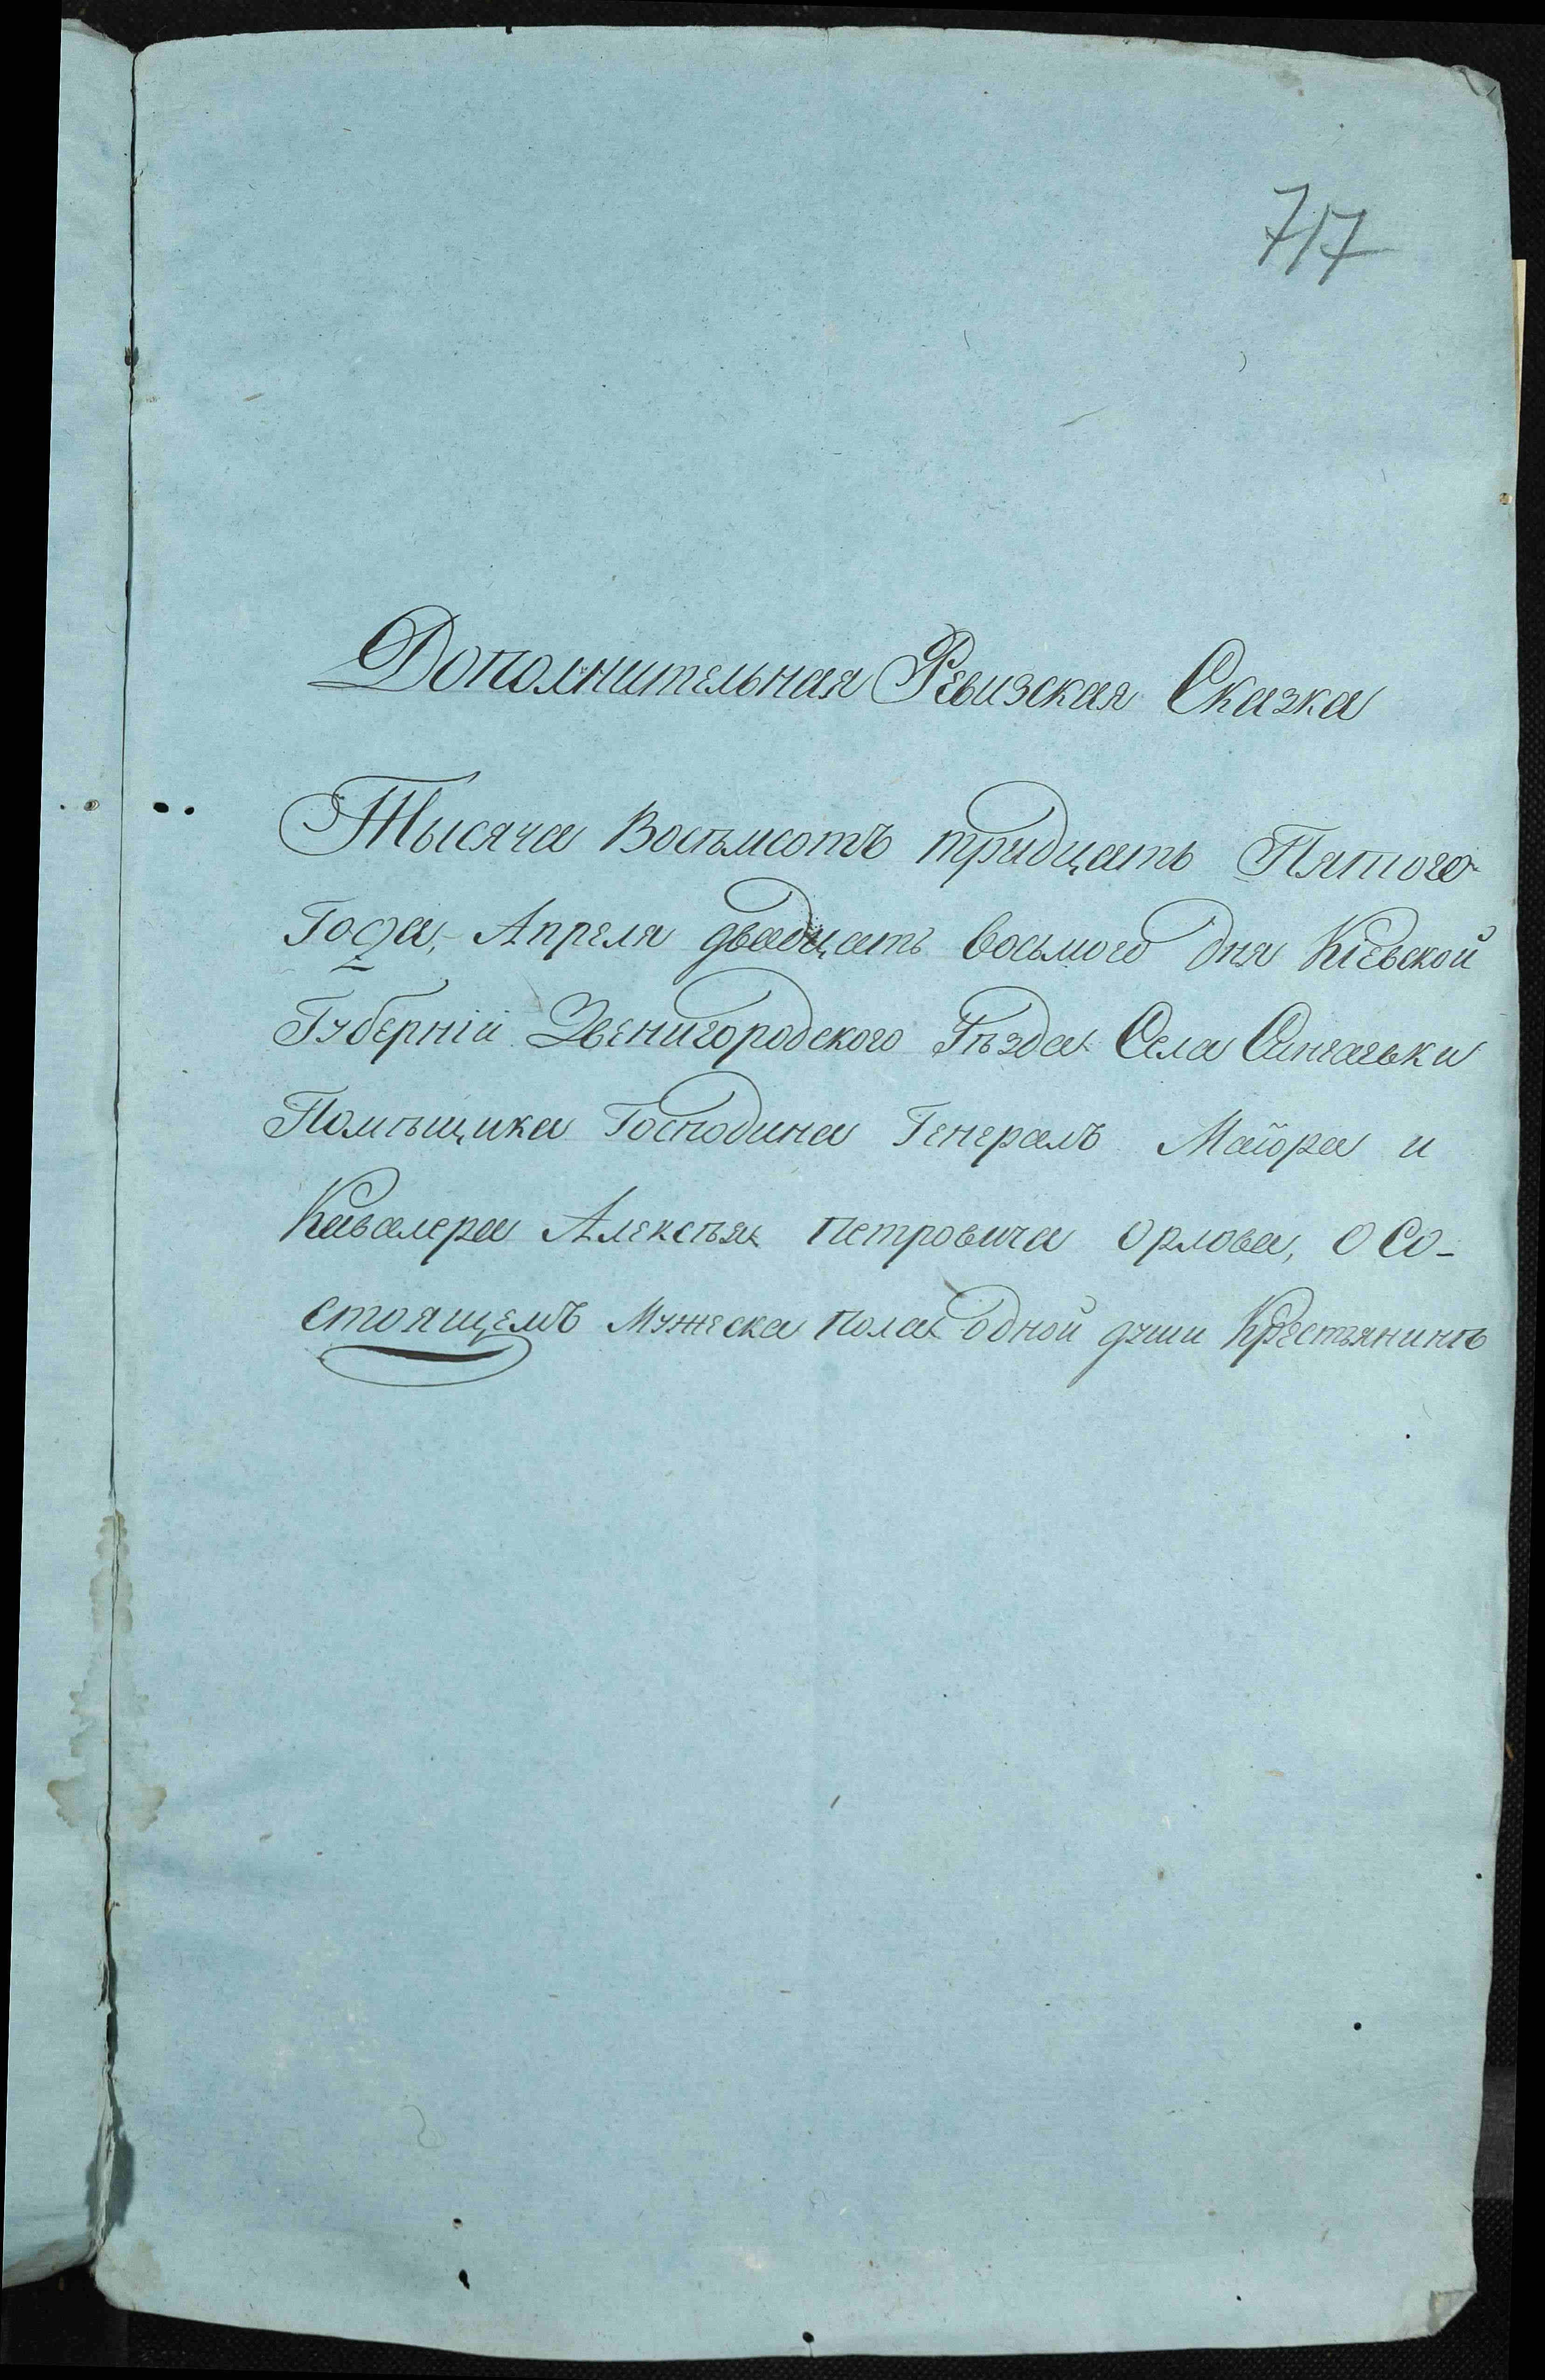 717
Дополнительная Ревизская Сказка
Тысяча Восемьсотъ тридцать Пятого
Года, Апреля двадцать восьмого дня Кіевской
Губерніи Звенигородского Уѣзда Села
Помѣщика Господина Генералъ Маіора и
Кавалера Алексѣя Петровича Орлова, о Со-
стоящемъ Мужеска пола одной души Крестьянинѣ